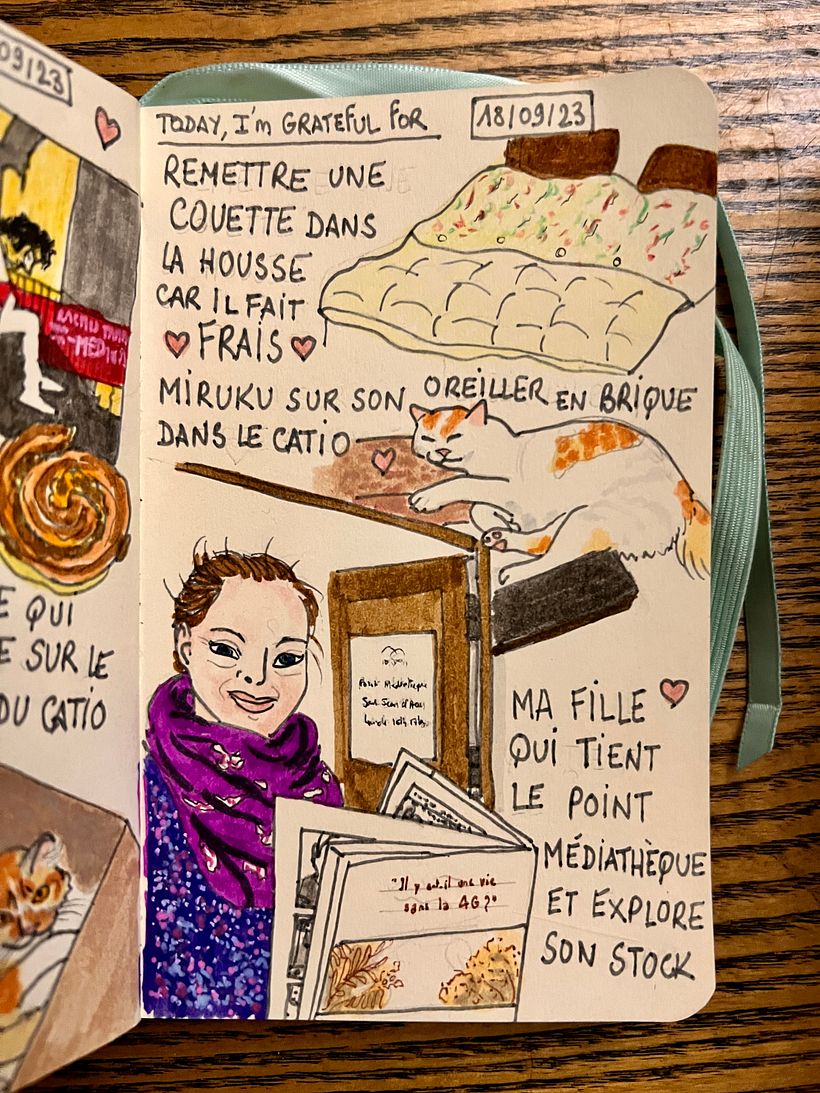 09/23
E QUI
E SUR LE
DU CATIO
TODAY, I'm GRATEFUL FOR
18/09/23
REMETTRE UNE
COUETTE DANS
LA HOUSSE
CAR IL FAIT
FRAIS
MIRUKU SUR SON OREILLER EN BRIQUE
DANS LE CATIO
Point Médiathèque
MA FILLE
QUI TIENT
LE POINT
MÉDIATHÈQUE
ET EXPLORE
SON STOCK
"Il y a-t-il une vie
sans la 4G?"